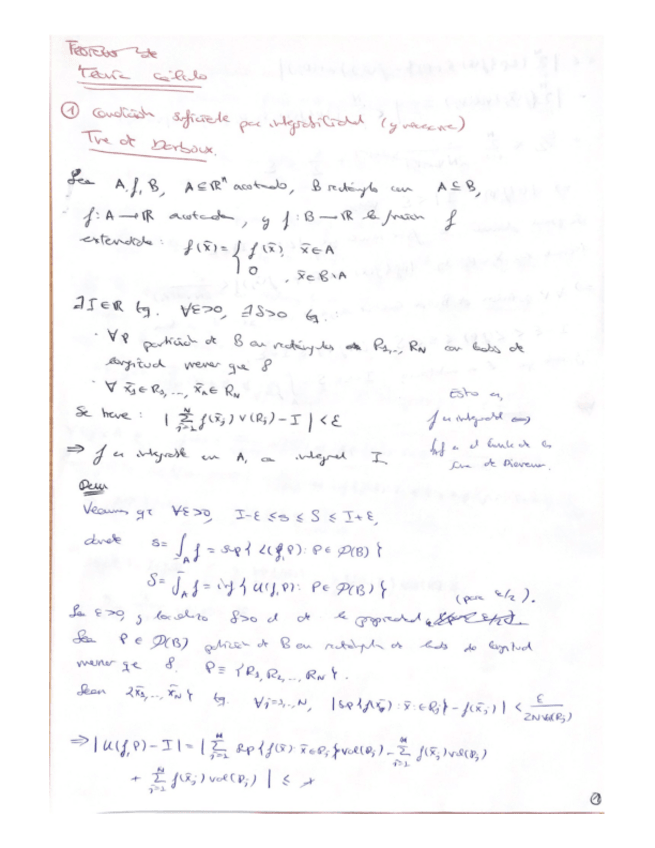 Teoría cálculo
① Condición suficiente para integrabilidad (y necesaria)
Tma de Darboux.
Sea A, f, B, A⊆ℝⁿ acotado, B rectángulo con A⊆B,
f: A→ℝ acotada, y f: B→ℝ la función f
extendida: f(x̄) = { f(x̄), x̄∈A
0, x̄∈B∖A
∃I∈ℝ tq. ∀ε>0, ∃δ>0 tq.:
· ∀P partición de B en rectángulos R₁,..., R_N con lados de
longitud menor que δ
· ∀ x̄₁∈R₁, ..., x̄_N∈R_N
Se tiene: | Σ_{j=1}^N f(x̄_j) v(R_j) − I | < ε
Esto es,
f es integrable
∫f es el límite de las
de Riemann.
⇒ f es integrable en A, con integral I.
Dem
Veamos que ∀ε>0, I−ε ≤ s ≤ S ≤ I+ε,
donde s = ∫_A f = sup{ L(f,P): P∈𝒫(B) }
S = ∫_A f = inf{ U(f,P): P∈𝒫(B) }
(para ε/2).
Sea ε>0, y δ>0 el de la propiedad
Sea P∈𝒫(B) partición de B en rectángulos de lados de longitud
menor que δ. P ≡ {R₁, R₂, ..., R_N}.
Sean {x̄₁, ..., x̄_N} tq. ∀j=1,..,N, |sup{f(x̄): x̄∈R_j} − f(x̄_j)| < ε/(2N vol(R_j))
⇒ |U(f,P) − I| = | Σ_{j=1}^N sup{f(x̄): x̄∈R_j} vol(R_j) − Σ_{j=1}^N f(x̄_j) vol(R_j)
+ Σ_{j=1}^N f(x̄_j) vol(R_j) | ≤
①